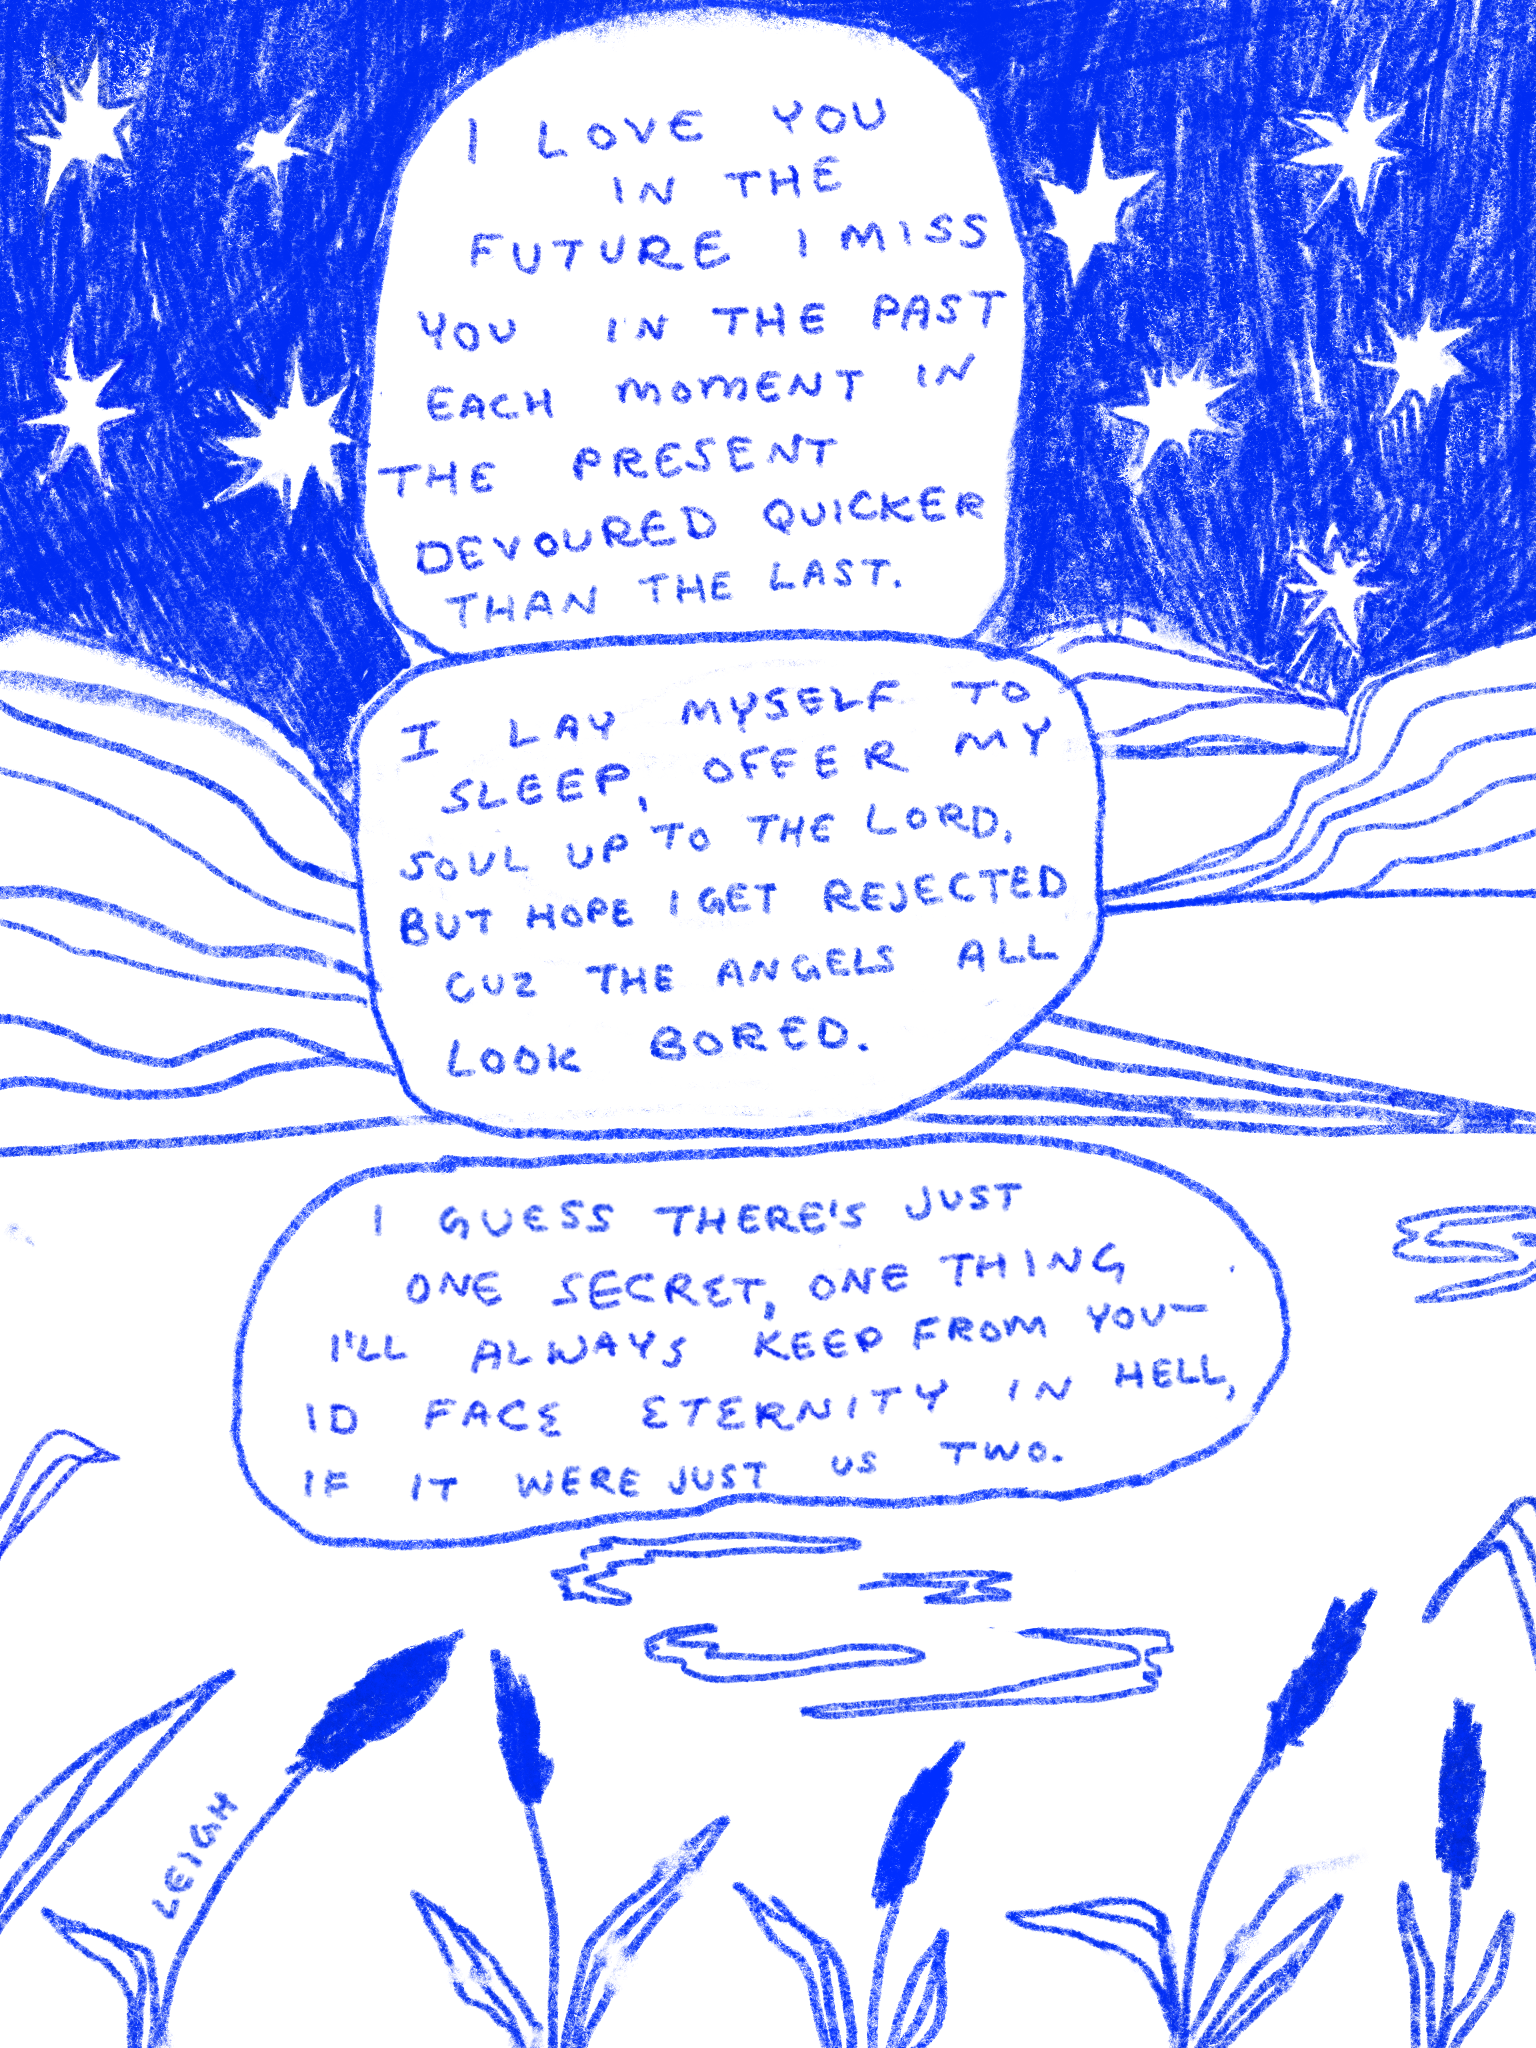 I LOVE YOU
IN THE
FUTURE I MISS
YOU IN THE PAST
EACH MOMENT IN
THE PRESENT
DEVOURED QUICKER
THAN THE LAST.
I LAY MYSELF TO
SLEEP, OFFER MY
SOUL UP TO THE LORD,
BUT HOPE I GET REJECTED
CUZ THE ANGELS ALL
LOOK BORED.
I GUESS THERE'S JUST
ONE SECRET, ONE THING
I'LL ALWAYS KEEP FROM YOU—
ID FACE ETERNITY IN HELL,
IF IT WERE JUST US TWO.
LEIGH